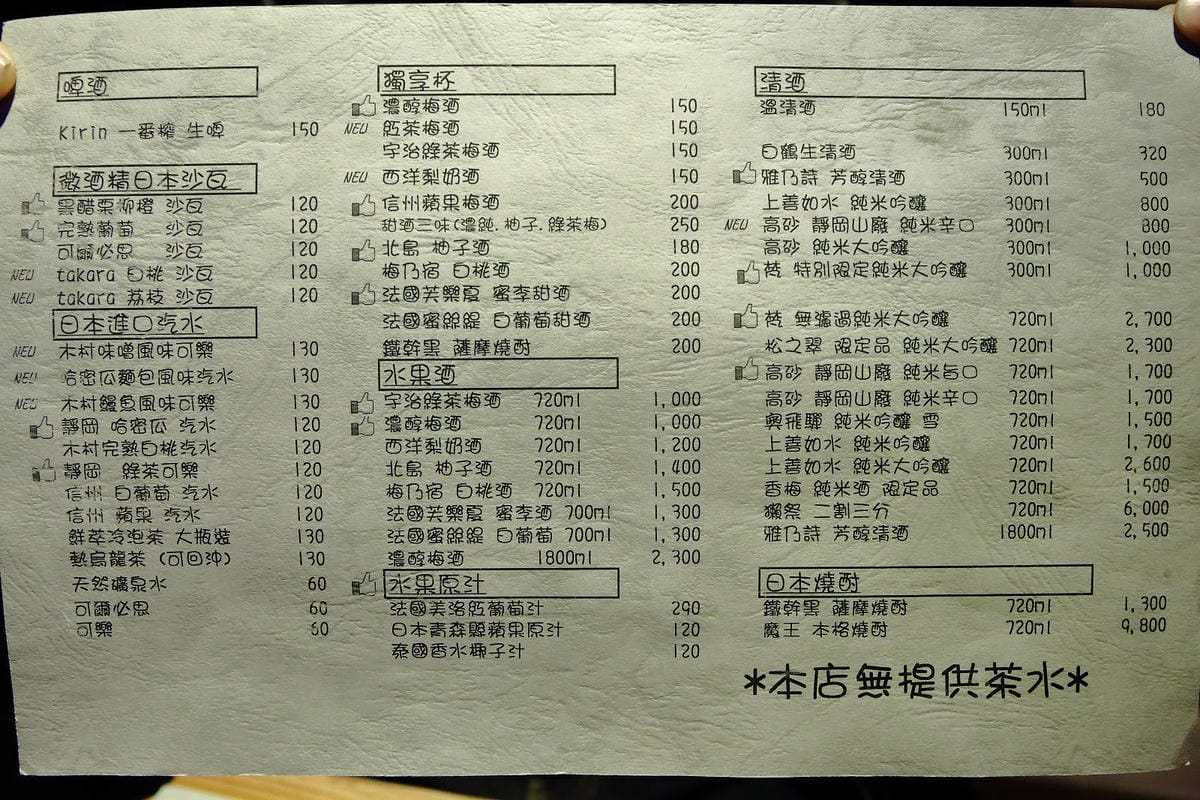 啤酒
Kirin 一番榨 生啤 150
微酒精日本沙瓦
黑醋栗柳橙 沙瓦 120
完熟葡萄 沙瓦 120
可爾必思 沙瓦 120
NEW takara 白桃 沙瓦 120
NEW takara 荔枝 沙瓦 120
日本進口汽水
NEW 木村味噌風味可樂 130
NEW 哈密瓜麵包風味汽水 130
NEW 木村鰻魚風味可樂 130
靜岡 哈密瓜 汽水 120
木村完熟白桃汽水 120
靜岡 綠茶可樂 120
信州 白葡萄 汽水 120
信州 蘋果 汽水 120
鮮萃冷泡茶 大瓶裝 130
熱烏龍茶 (可回沖) 130
天然礦泉水 60
可爾必思 60
可樂 60
獨享杯
濃醇梅酒 150
NEW 紅茶梅酒 150
宇治綠茶梅酒 150
NEW 西洋梨奶酒 150
信州蘋果梅酒 200
甜酒三味(濃純.柚子.綠茶梅) 250
北島 柚子酒 180
梅乃宿 白桃酒 200
法國芙樂夏 蜜李甜酒 200
法國蜜絲緹 白葡萄甜酒 200
鐵幹黑 薩摩燒酎 200
水果酒
宇治綠茶梅酒 720ml 1,000
濃醇梅酒 720ml 1,000
西洋梨奶酒 720ml 1,200
北島 柚子酒 720ml 1,400
梅乃宿 白桃酒 720ml 1,500
法國芙樂夏 蜜李酒 700ml 1,300
法國蜜絲緹 白葡萄 700ml 1,300
濃醇梅酒 1800ml 2,300
水果原汁
法國美洛紅葡萄汁 290
日本青森縣蘋果原汁 120
泰國香水椰子汁 120
清酒
溫清酒 150ml 180
白鶴生清酒 300ml 320
雅乃詩 芳醇清酒 300ml 500
上善如水 純米吟釀 300ml 800
NEW 高砂 靜岡山廢 純米辛口 300ml 800
高砂 純米大吟釀 300ml 1,000
梵 特別限定純米大吟釀 300ml 1,000
梵 無濾過純米大吟釀 720ml 2,700
松之翠 限定品 純米大吟釀 720ml 2,300
高砂 靜岡山廢 純米旨口 720ml 1,700
高砂 靜岡山廢 純米辛口 720ml 1,700
奧飛驒 純米吟釀 雪 720ml 1,500
上善如水 純米吟釀 720ml 1,700
上善如水 純米大吟釀 720ml 2,600
香梅 純米酒 限定品 720ml 1,500
獺祭 二割三分 720ml 6,000
雅乃詩 芳醇清酒 1800ml 2,500
日本燒酎
鐵幹黑 薩摩燒酎 720ml 1,300
魔王 本格燒酎 720ml 9,800
*本店無提供茶水*